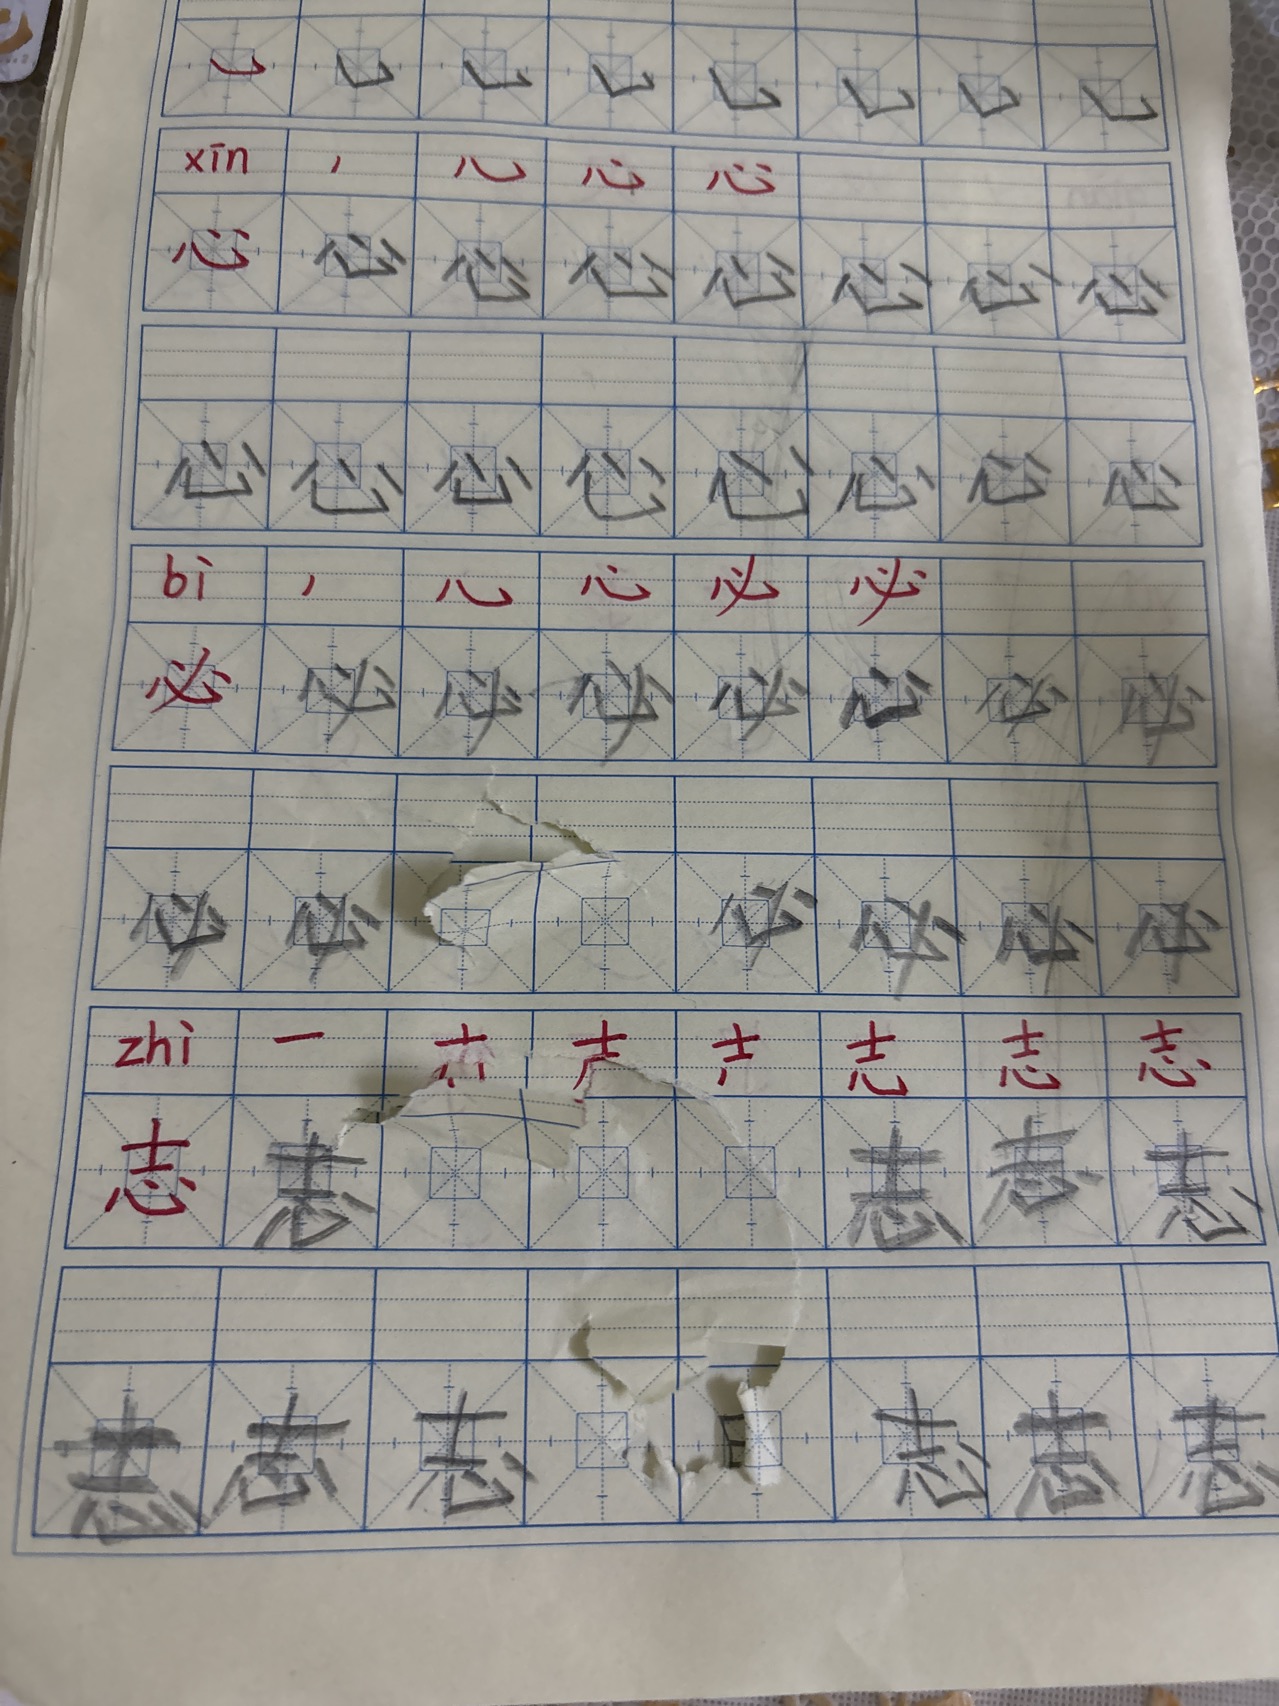 ㇃ ㇃ ㇃ ㇃ ㇃ ㇃ ㇃ ㇃
xīn 心 心
心 心 心 心 心 心 心 心
心 心 心 心 心 心 心 心
bì 心 必
必 必 必 必 必 必 必 必
必 必 必 必 必 必
zhì 一 士 志
志 志 志 志 志
志 志 志 志 志 志